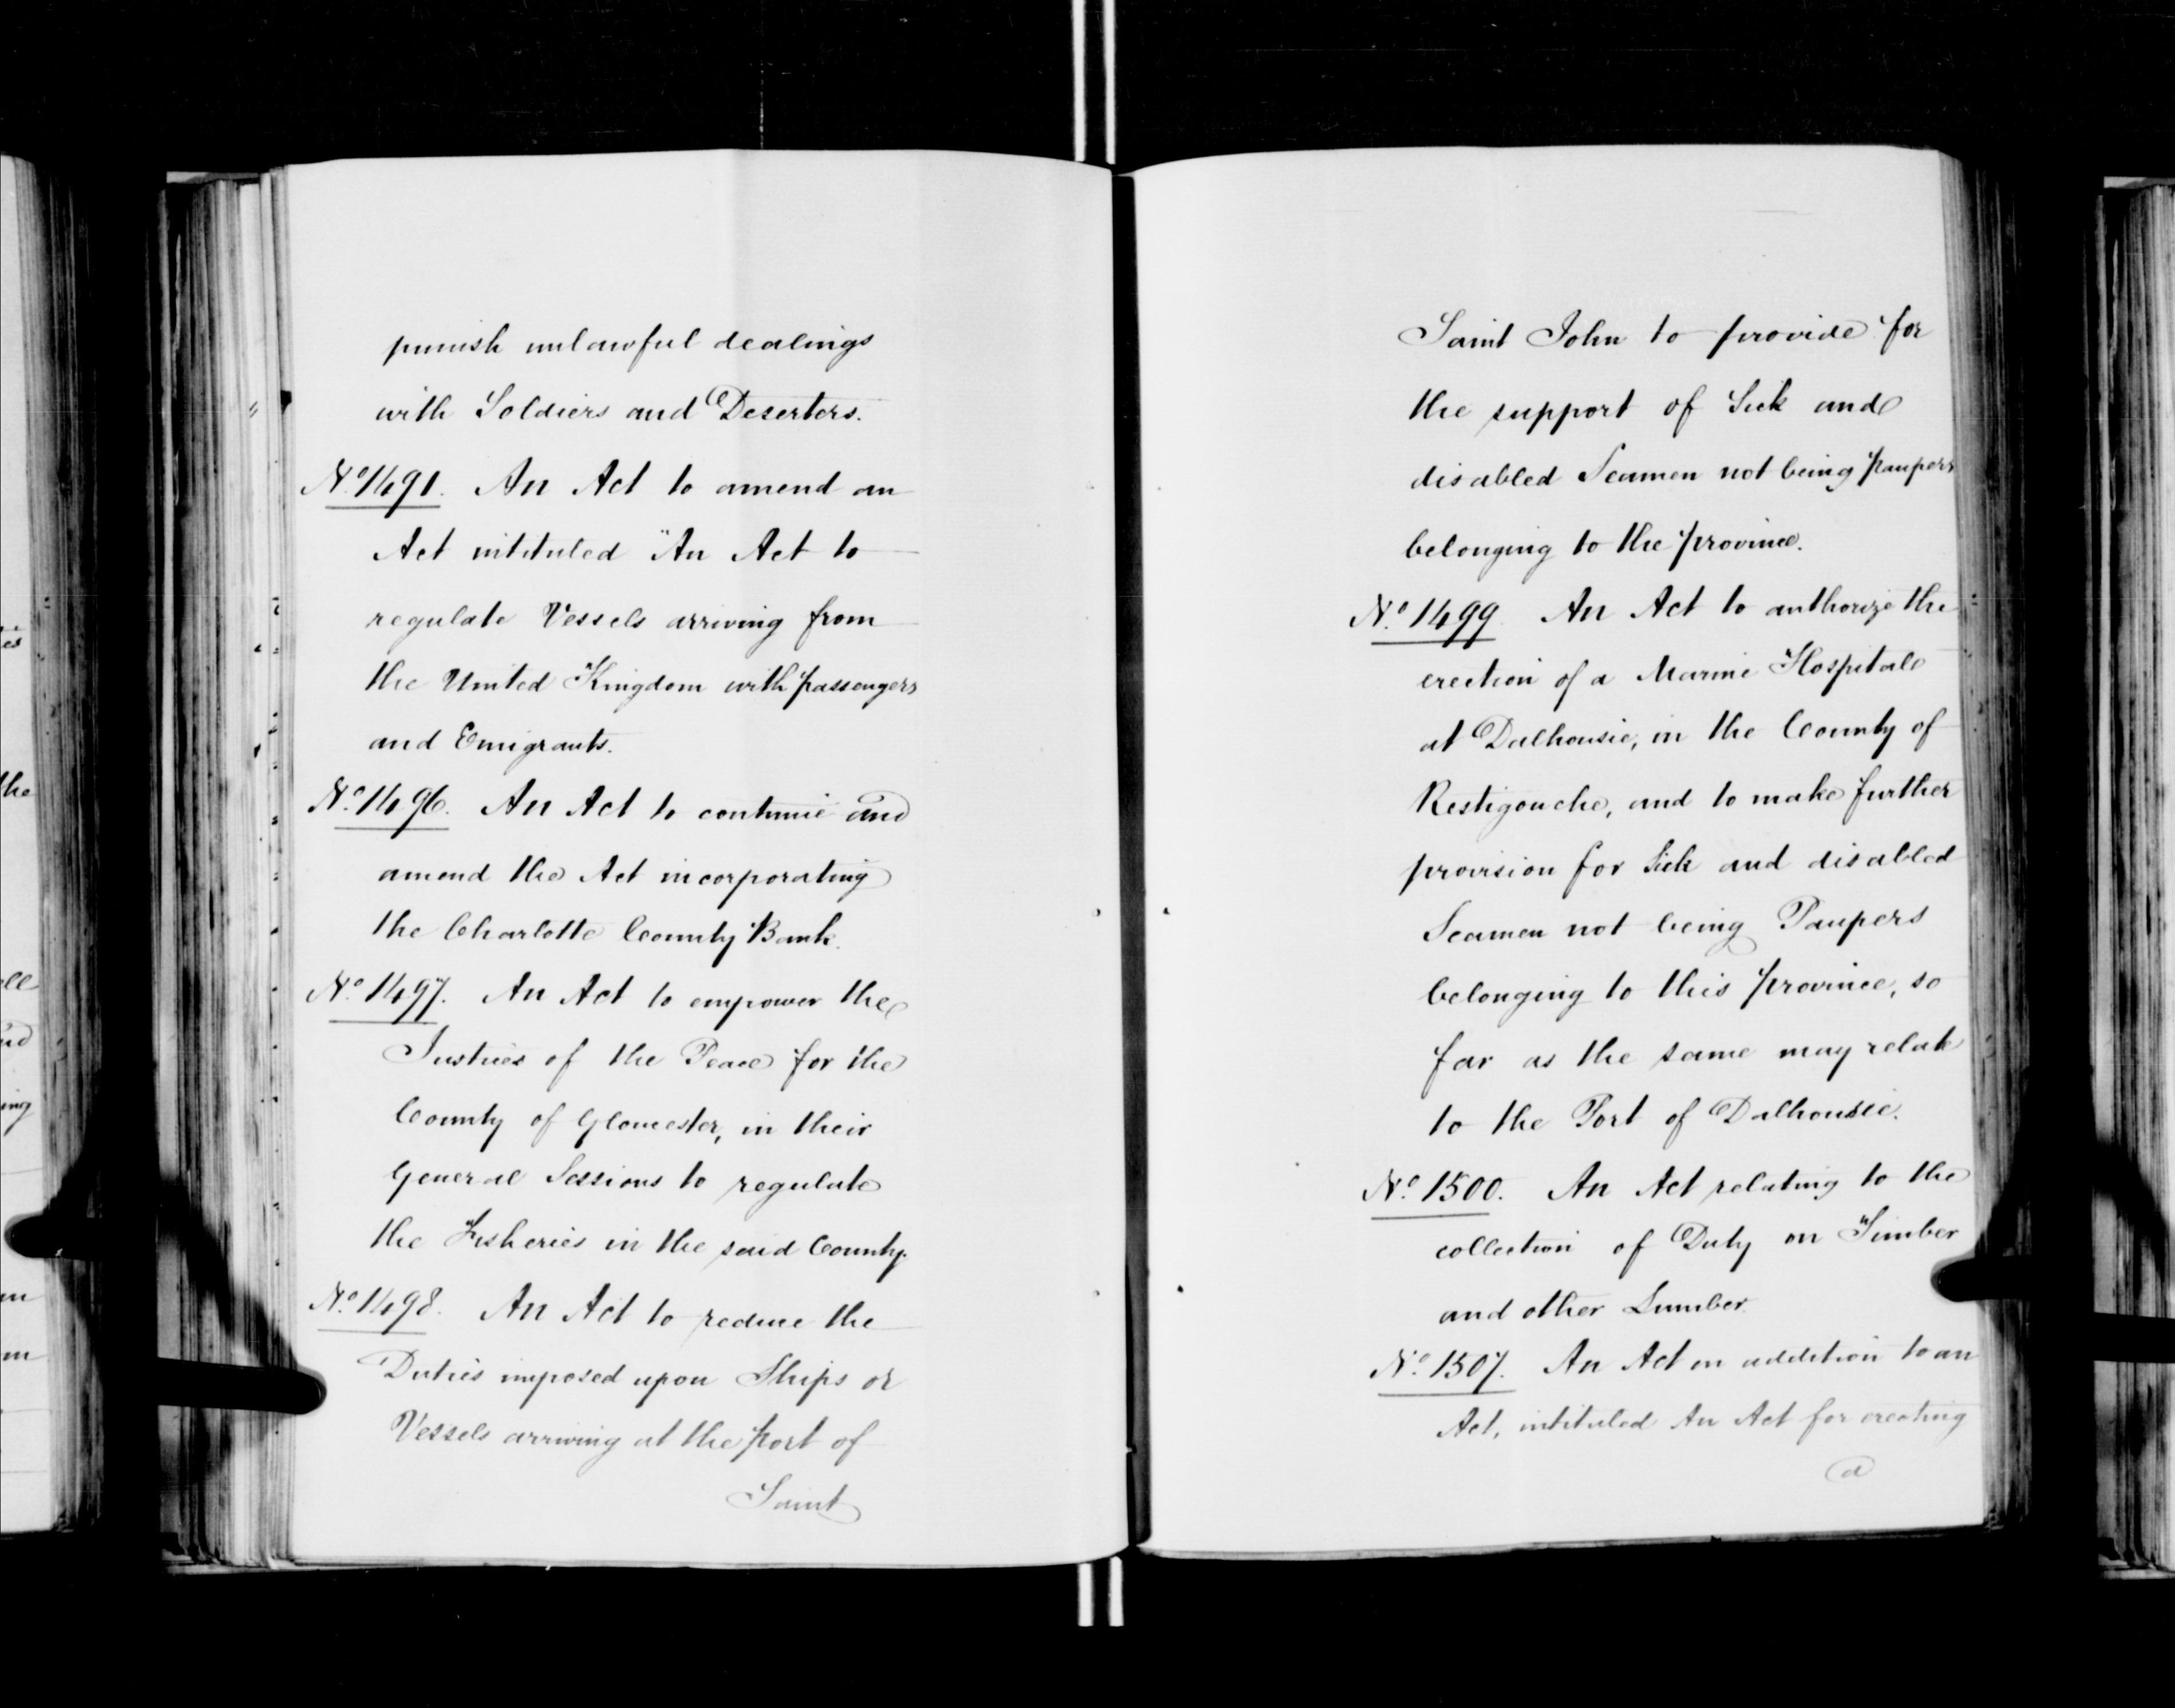 punish unlawful dealings
with Soldiers and Deserters.
No. 1491. An Act to amend an
Act intituled "An Act to
regulate Vessels arriving from
the United Kingdom with passengers
and Emigrants.
No. 1496. An Act to continue and
amend the Act incorporating
the Charlotte County Bank.
No. 1497. An Act to empower the
Justices of the Peace for the
County of Gloucester, in their
General Sessions to regulate
the Fisheries in the said County.
No. 1498. An Act to reduce the
Duties imposed upon Ships or
Vessels arriving at the port of
Saint
Saint John to provide for
the support of Sick and
disabled Seamen not being paupers
belonging to the province.
No. 1499 An Act to authorize the
erection of a Marine Hospital
at Dalhousie, in the County of
Restigouche, and to make further
provision for Sick and disabled
Seamen not being Paupers
belonging to this province, so
far as the same may relate
to the Port of Dalhousie.
No. 1500. An Act relating to the
collection of Duty on Timber
and other Lumber.
No. 1507. An Act in addition to an
Act, intituled An Act for erecting
a